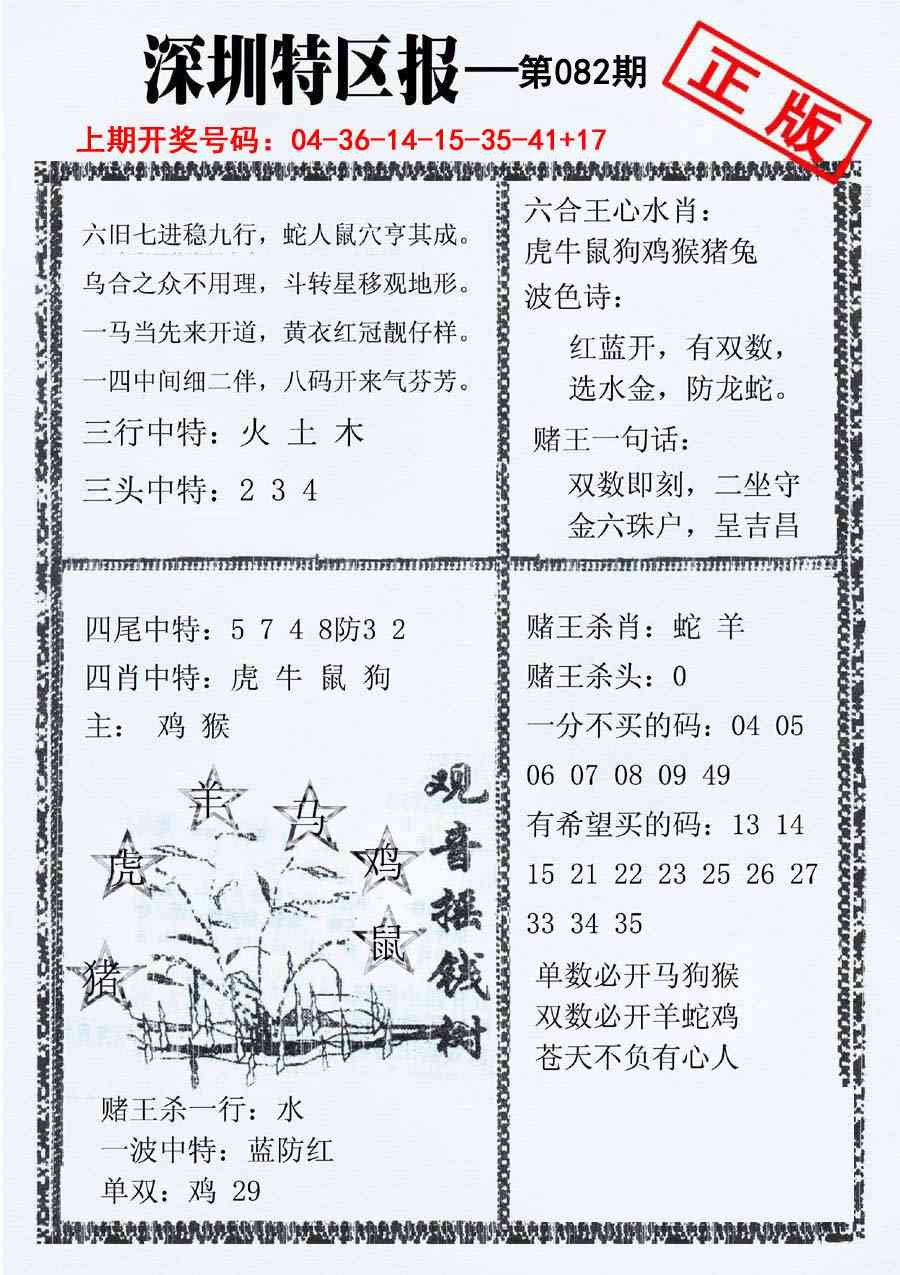 深圳特区报—第082期
正版
上期开奖号码：04-36-14-15-35-41+17
六旧七进稳九行，蛇人鼠穴亨其成。
乌合之众不用理，斗转星移观地形。
一马当先来开道，黄衣红冠靓仔样。
一四中间细二伴，八码开来气芬芳。
三行中特：火 土 木
三头中特：2 3 4
六合王心水肖：
虎牛鼠狗鸡猴猪兔
波色诗：
红蓝开，有双数，
选水金，防龙蛇。
赌王一句话：
双数即刻，二坐守
金六珠户，呈吉昌
四尾中特：5 7 4 8防3 2
四肖中特：虎 牛 鼠 狗
主： 鸡 猴
羊
马
虎
鸡
鼠
猪
观音摇钱树
赌王杀一行：水
一波中特：蓝防红
单双：鸡 29
赌王杀肖：蛇 羊
赌王杀头：0
一分不买的码：04 05
06 07 08 09 49
有希望买的码：13 14
15 21 22 23 25 26 27
33 34 35
单数必开马狗猴
双数必开羊蛇鸡
苍天不负有心人